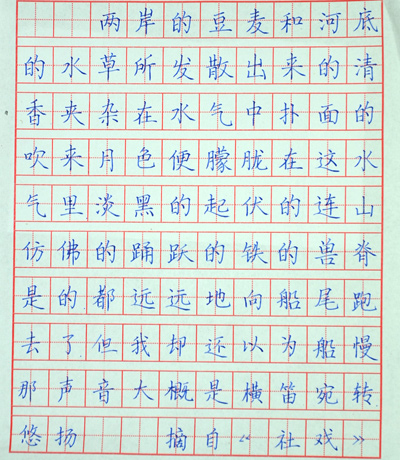 两岸的豆麦和河底
的水草所发散出来的清
香夹杂在水气中扑面的
吹来月色便朦胧在这水
气里淡黑的起伏的连山
仿佛的踊跃的铁的兽脊
是的都远远地向船尾跑
去了但我却还以为船慢
那声音大概是横笛宛转
悠扬 摘自“社戏”